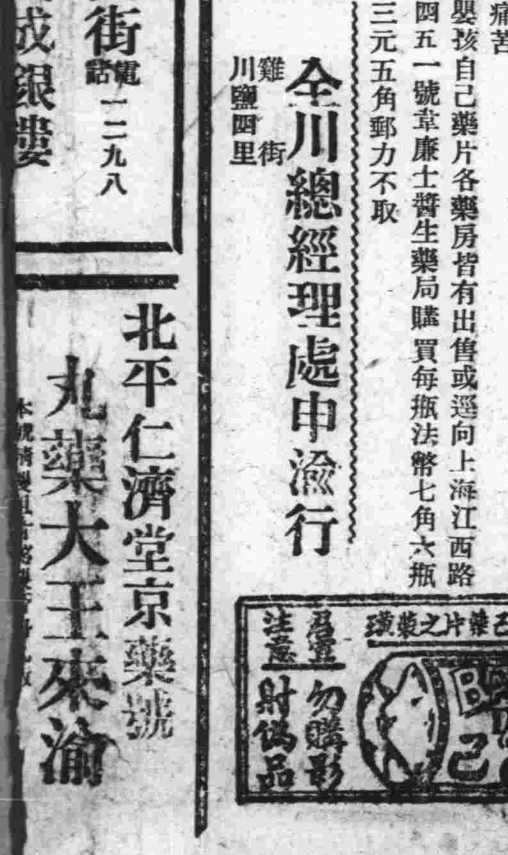 痛苦
嬰孩自己藥片各藥房皆有出售或逕向上海江西路
四五一號韋廉士醫生藥局購買每瓶法幣七角六瓶
三元五角郵力不取
全川總經理處申渝行
雞街
川鹽四里
君置
注意
勿購影
射偽品
己藥片之裝璜
B
己
街電話一二九八
成銀樓
北平仁濟堂京藥號
丸藥大王來渝